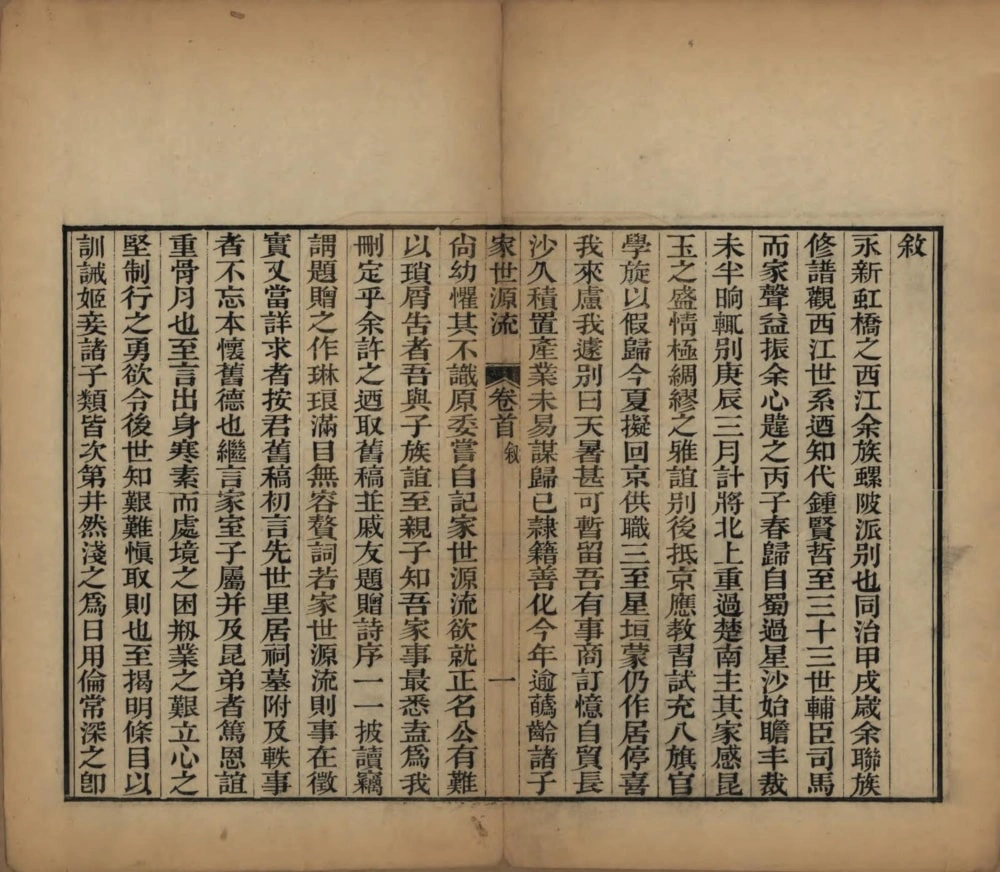 敘
永新虹橋之西江余族螺陂派别也同治甲戌歲余聯族
修譜觀西江世系迺知代鍾賢哲至三十三世輔臣司馬
而家聲益振余心韙之丙子春歸自蜀過星沙始瞻丰裁
未半晌輒别庚辰三月計將北上重過楚南主其家感昆
玉之盛情極綢繆之雅誼别後抵京應教習試充八旗官
學旋以假歸今夏擬回京供職三至星垣蒙仍作居停喜
我來慮我遽别曰天暑甚可暫留吾有事商訂憶自貿長
沙久積置產業未易謀歸已隸籍善化今年逾䕒齡諸子
家世源流 卷首 敘 一
尙幼懼其不識原委嘗自記家世源流欲就正名公有難
以瑣屑告者吾與子族誼至親子知吾家事最悉盍爲我
刪定乎余許之迺取舊稿並戚友題贈詩序一一披讀竊
謂題贈之作琳琅滿目無容贅詞若家世源流則事在徵
實又當詳求者按君舊稿初言先世里居祠墓附及軼事
者不忘本懷舊德也繼言家室子屬并及昆弟者篤恩誼
重骨月也至言出身寒素而處境之困剏業之艱立心之
堅制行之勇欲令後世知艱難愼取則也至揭明條目以
訓誡姬妾諸子類皆次第井然淺之爲日用倫常深之卽